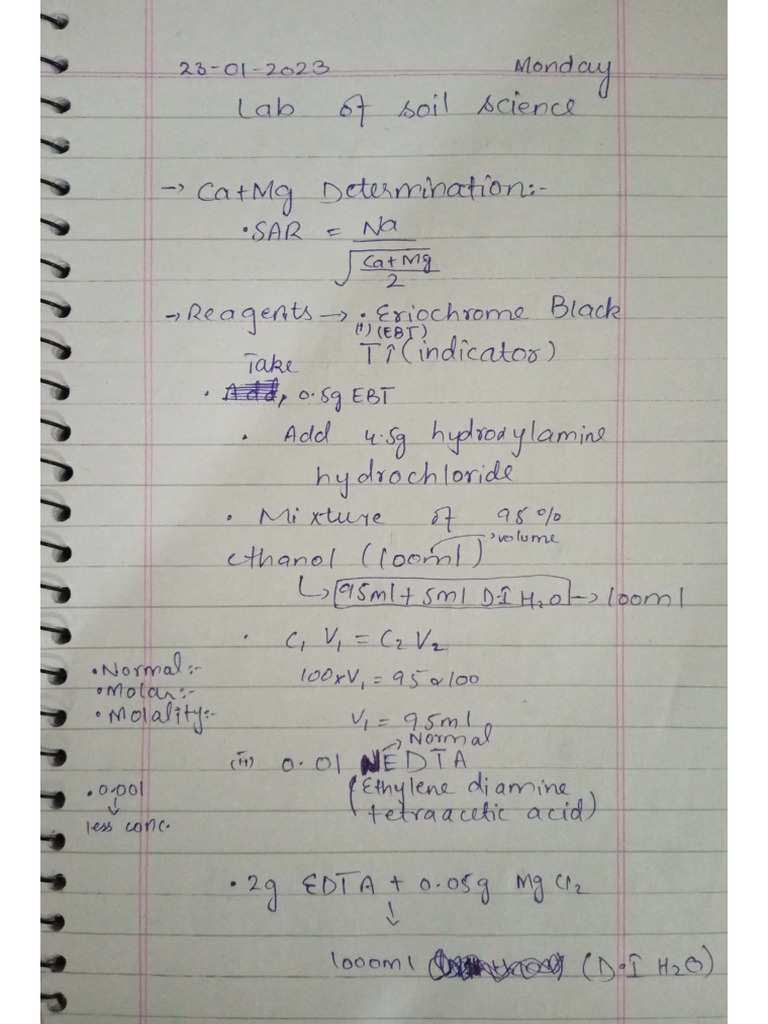 23-01-2023 Monday
Lab of soil science
→ Ca+Mg Determination:-
• SAR = Na
√Ca+Mg
2
→ Reagents → • Eriochrome Black
(i) (EBT)
T↑ (indicator)
Take
• 0.5g EBT
• Add 4.5g hydroxylamine
hydrochloride
• Mixture of 95%
ethanol (100ml) → volume
↳ 95ml + 5ml D.I H₂O → 100ml
• C₁ V₁ = C₂ V₂
• Normal:-
100 x V₁ = 95 x 100
• Molar:-
• Molality:-
V₁ = 95ml
→ Normal
(ii) 0.01 N EDTA
(Ethylene diamine
tetraacetic acid)
• 0.001
↓
less conc.
• 2g EDTA + 0.05g MgCl₂
↓
1000ml (D.I H₂O)